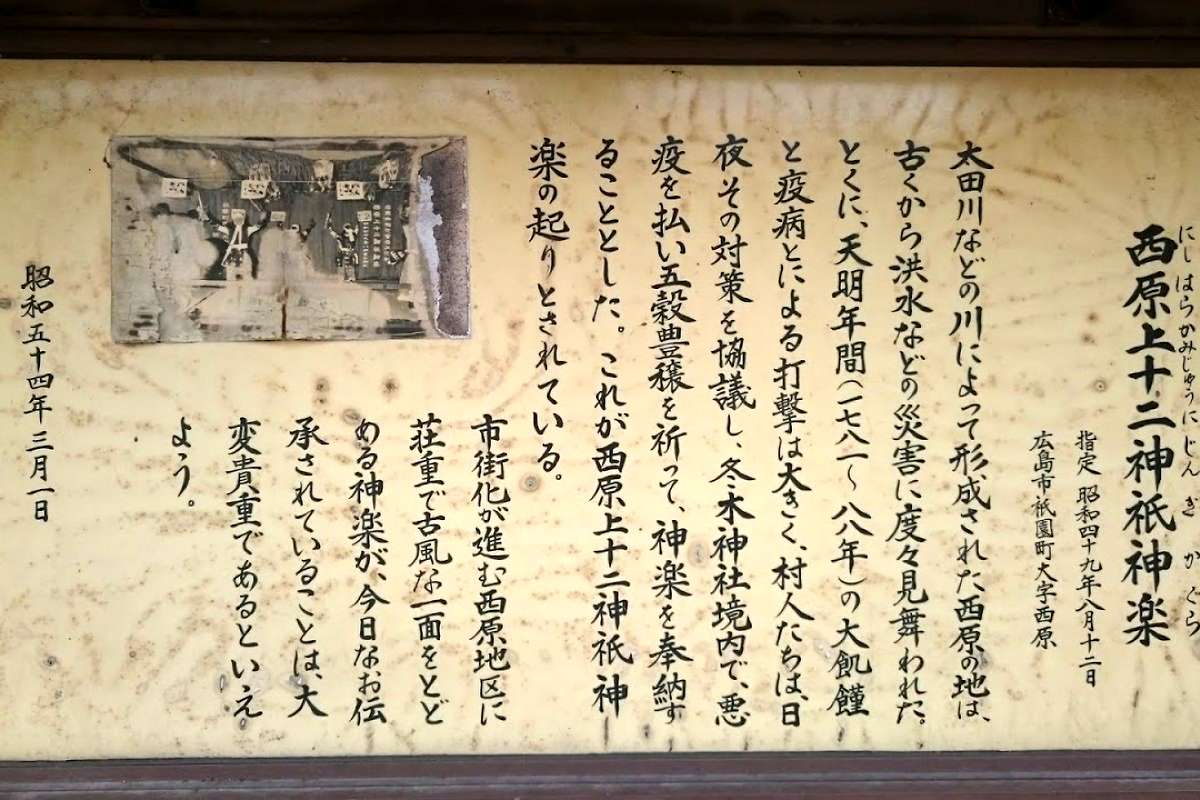 にしはらかみじゅうにじんぎかぐら
西原上十二神祇神楽
指定 昭和四十九年八月十二日
広島市祇園町大字西原
太田川などの川によって形成された西原の地は、
古くから洪水などの災害に度々見舞われた。
とくに、天明年間(一七八一〜八八年)の大飢饉
と疫病とによる打撃は大きく、村人たちは、日
夜その対策を協議し、冬木神社境内で、悪
疫を払い五穀豊穣を祈って、神楽を奉納す
ることとした。これが西原上十二神祇神
楽の起りとされている。
市街化が進む西原地区に
荘重で古風な一面をとど
める神楽が、今日なお伝
承されていることは、大
変貴重であるといえ
よう。
昭和五十四年三月一日